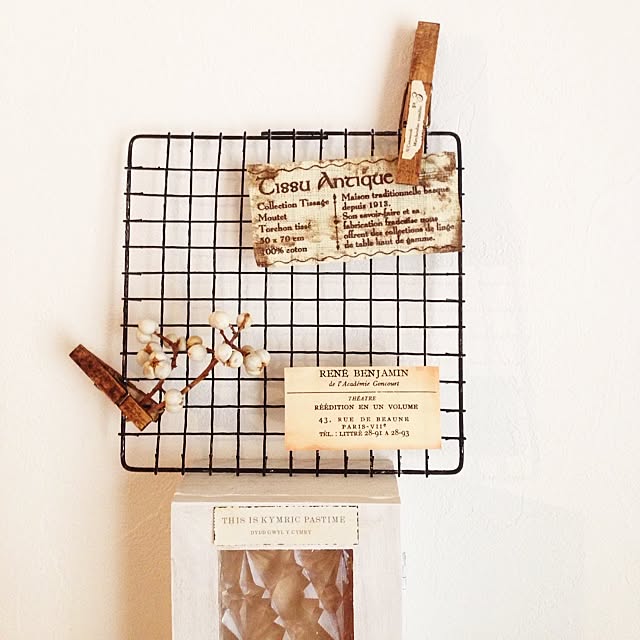 Tissu Antique
Collection Tissage
Moutet
Torchon tissé
50 x 70 cm
100% coton
Maison traditionnelle basque
depuis 1913.
Son savoir-faire et sa
fabrication française nous
offrent des collections de linge
de table haut de gamme.
RENÉ BENJAMIN
de l'Académie Goncourt
THÉATRE
RÉÉDITION EN UN VOLUME
43, RUE DE BEAUNE
PARIS-VIIe
TÉL. : LITTRÉ 28-91 A 28-93
THIS IS KYMRIC PASTIME
DYDD GWYL Y CYMRY